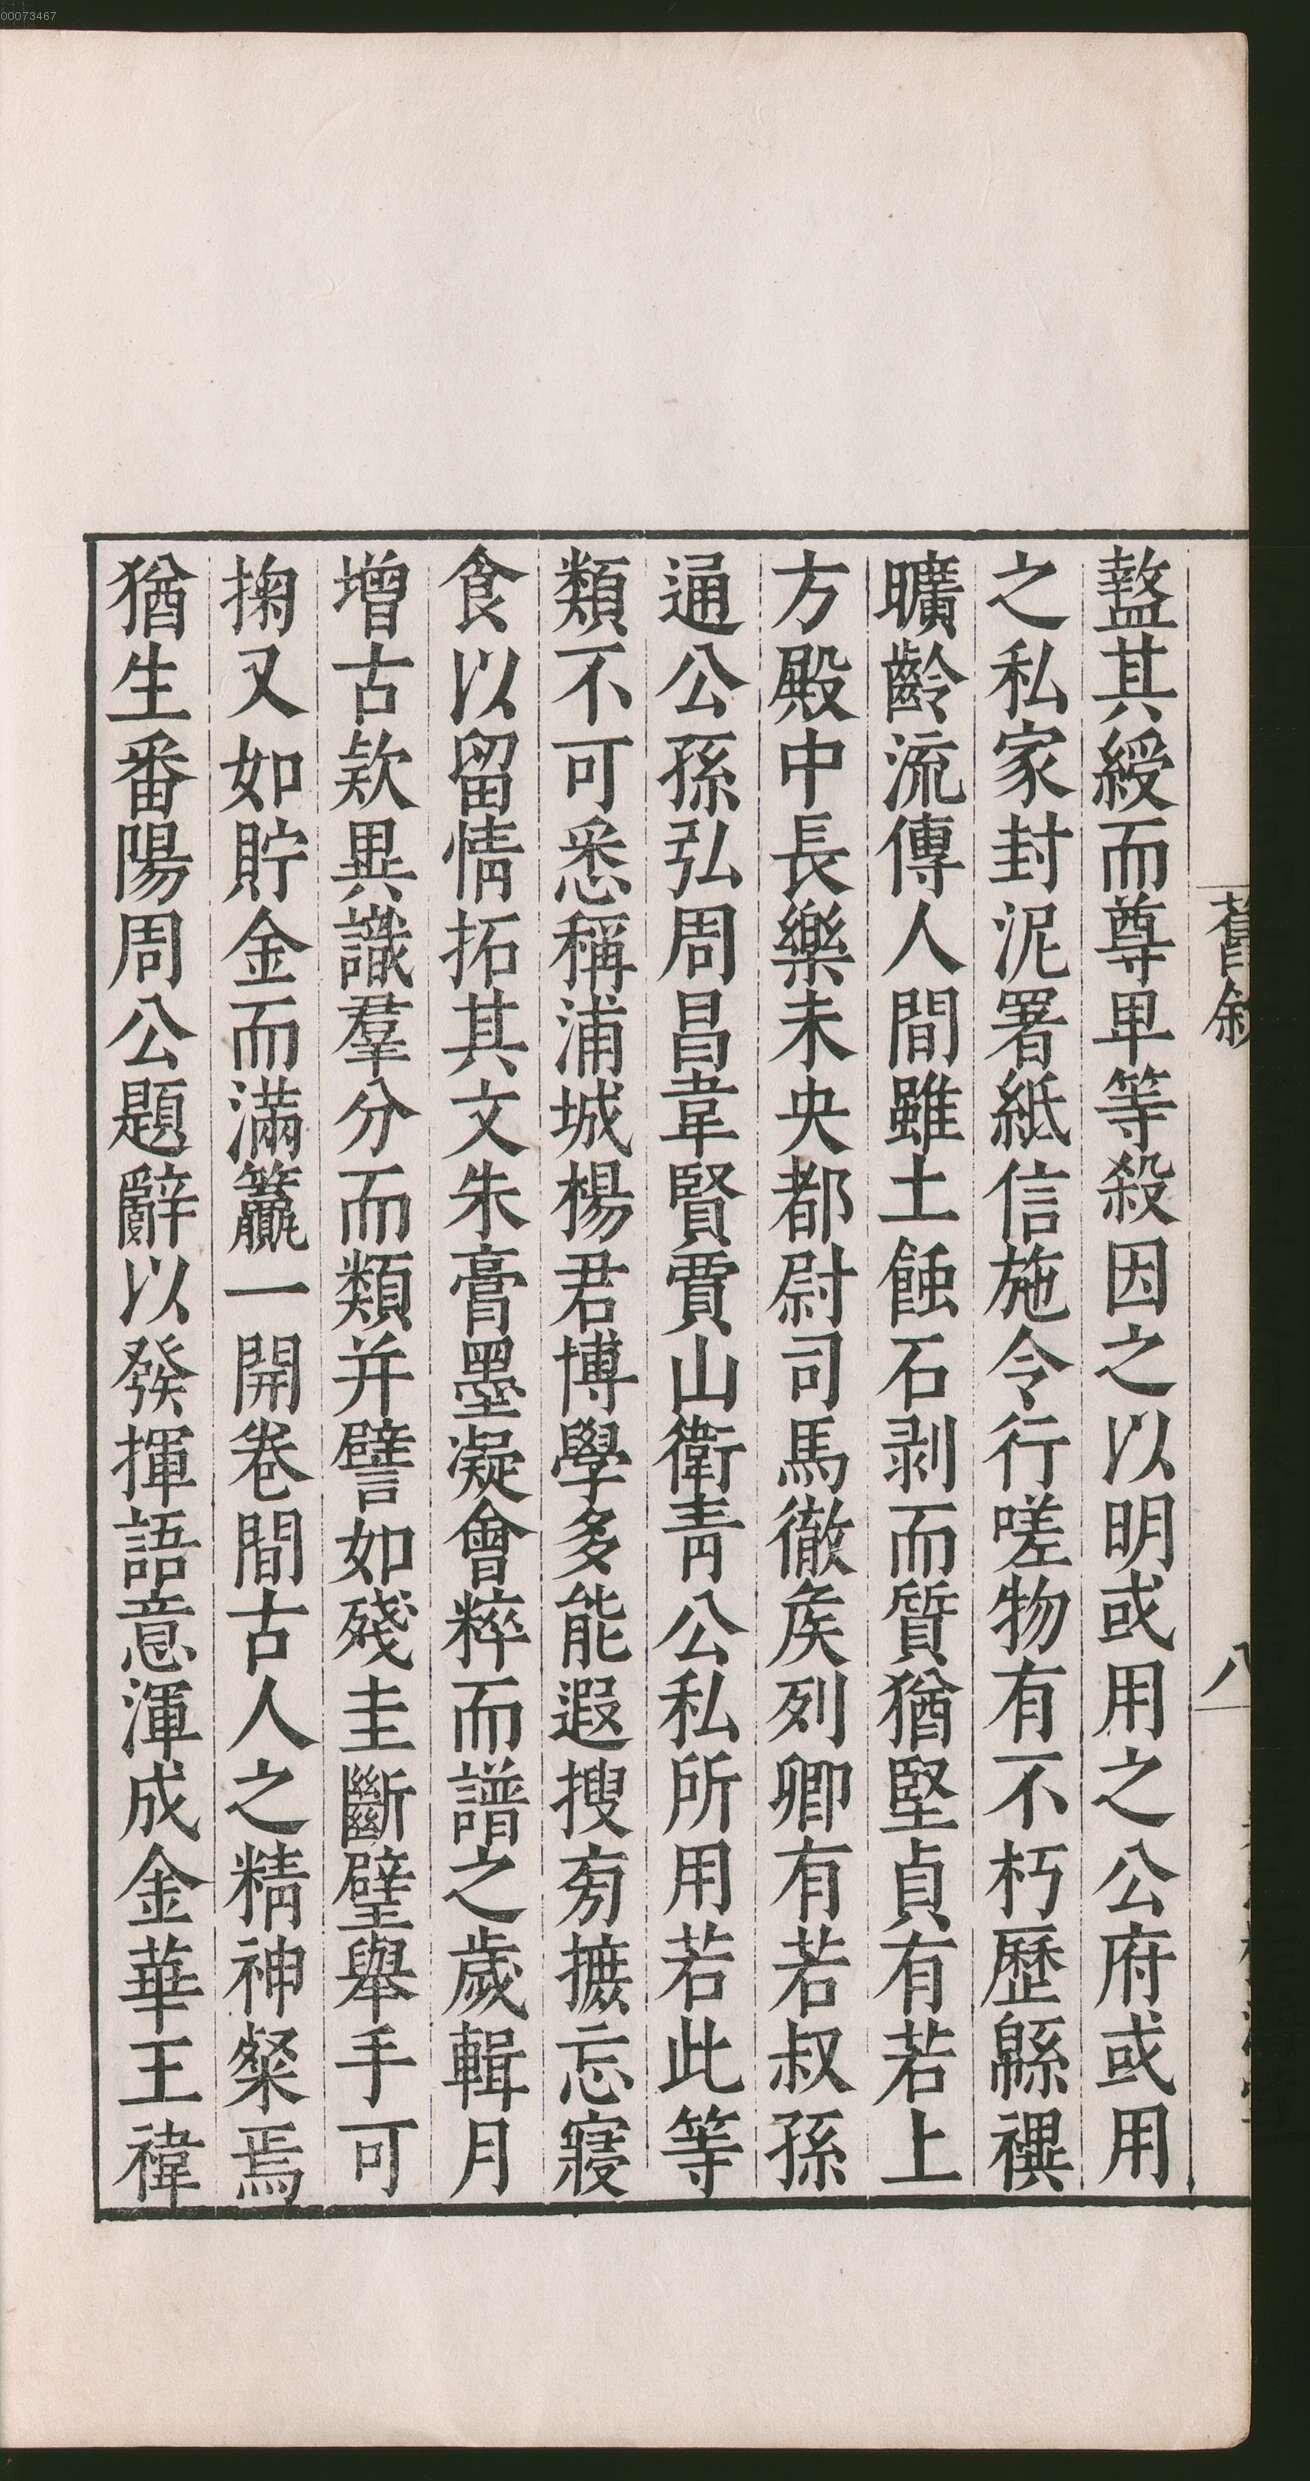 00073467
盭其綬而尊卑等殺因之以明或用之公府或用
之私家封泥署紙信施令行嗟物有不朽歷緜禩
曠齡流傳人間雖土蝕石剥而質猶堅貞有若上
方殿中長樂未央都尉司馬徹矦列卿有若叔孫
通公孫弘周昌韋賢賈山衛青公私所用若此等
類不可悉稱浦城楊君博學多能遐搜旁摭忘寢
食以留情拓其文朱膏墨凝會粹而譜之歲輯月
增古欵異識羣分而類并譬如殘圭斷璧舉手可
掬又如貯金而滿籯一開卷間古人之精神粲焉
猶生番陽周公題辭以發揮語意渾成金華王褘
舊敘
八